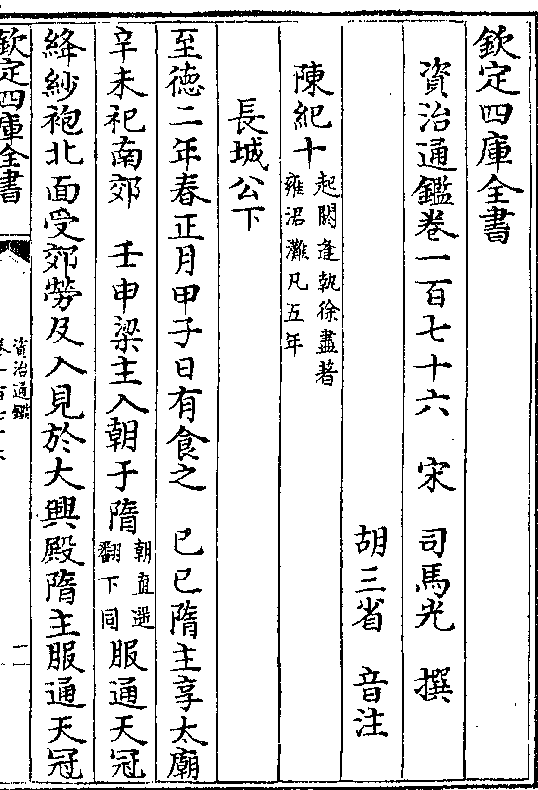 欽定四庫全書
資治通鑑卷一百七十六 宋 司馬光 撰
胡三省 音注
陳紀十 起閼逢執徐盡著
雍涒灘凡五年
長城公下
至徳二年春正月甲子日有食之 己巳隋主享太廟
辛未祀南郊 壬申梁主入朝于隋 朝直遥
翻下同 服通天冠
絳紗袍北面受郊勞及入見於大興殿隋主服通天冠
欽定四庫全書
資治通鑑